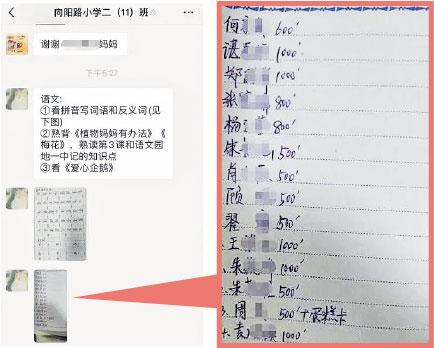 向阳路小学二（11）班
谢谢
妈妈
下午5:27
语文:
①看拼音写词语和反义词(见
下图)
②熟背《植物妈妈有办法》《
梅花》，熟读第3课和语文园
地一中记的知识点
③看《爱心企鹅》
何 600
谌 1000
郑 1000
张 800
杨 800
朱 1,500
肖 500
顾 500
翟 500
王 1000
朱 1000
朱 500
周 500 + 蛋糕卡
袁 1000